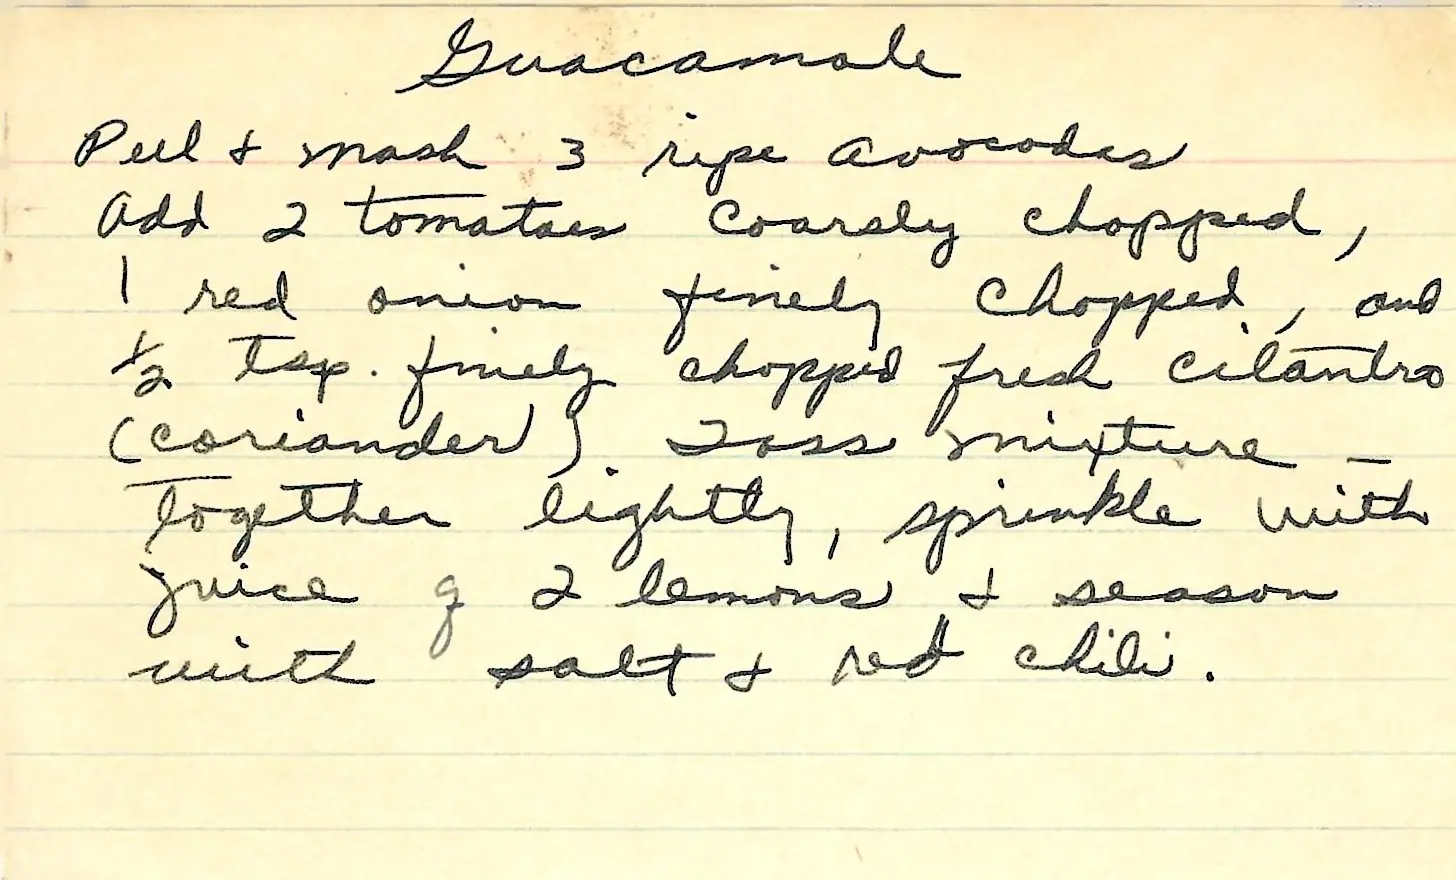 Guacamole
Peel & mash 3 ripe avocados
Add 2 tomatoes coarsly chopped,
1 red onion finely chopped, and
1/2 tsp. finely chopped fresh cilantro
(coriander). Toss mixture -
together lightly, sprinkle with
juice of 2 lemons & season
with salt & red chili.